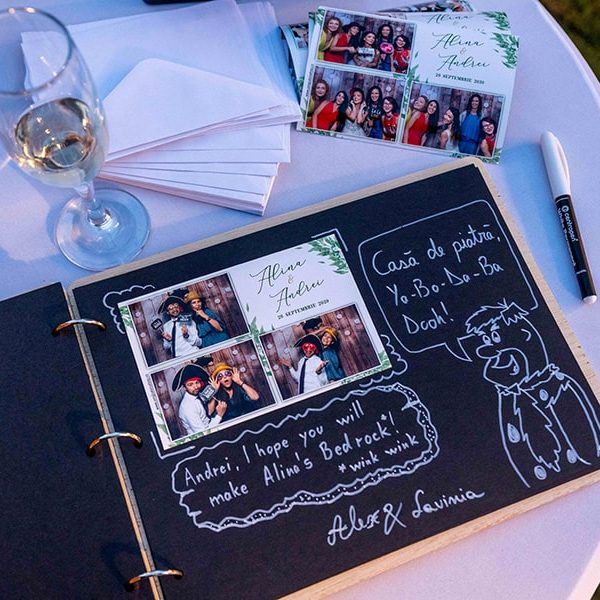 Alina
&
Andrei
28 SEPTEMBRIE 2020
Alina
&
Andrei
28 SEPTEMBRIE 2020
Casă de piatră,
Ya-Ba-Da-Ba
Dooh!
Andrei, I hope you will
make Alina's Bedrock!*
*wink wink
Alex & Lavinia
centropen